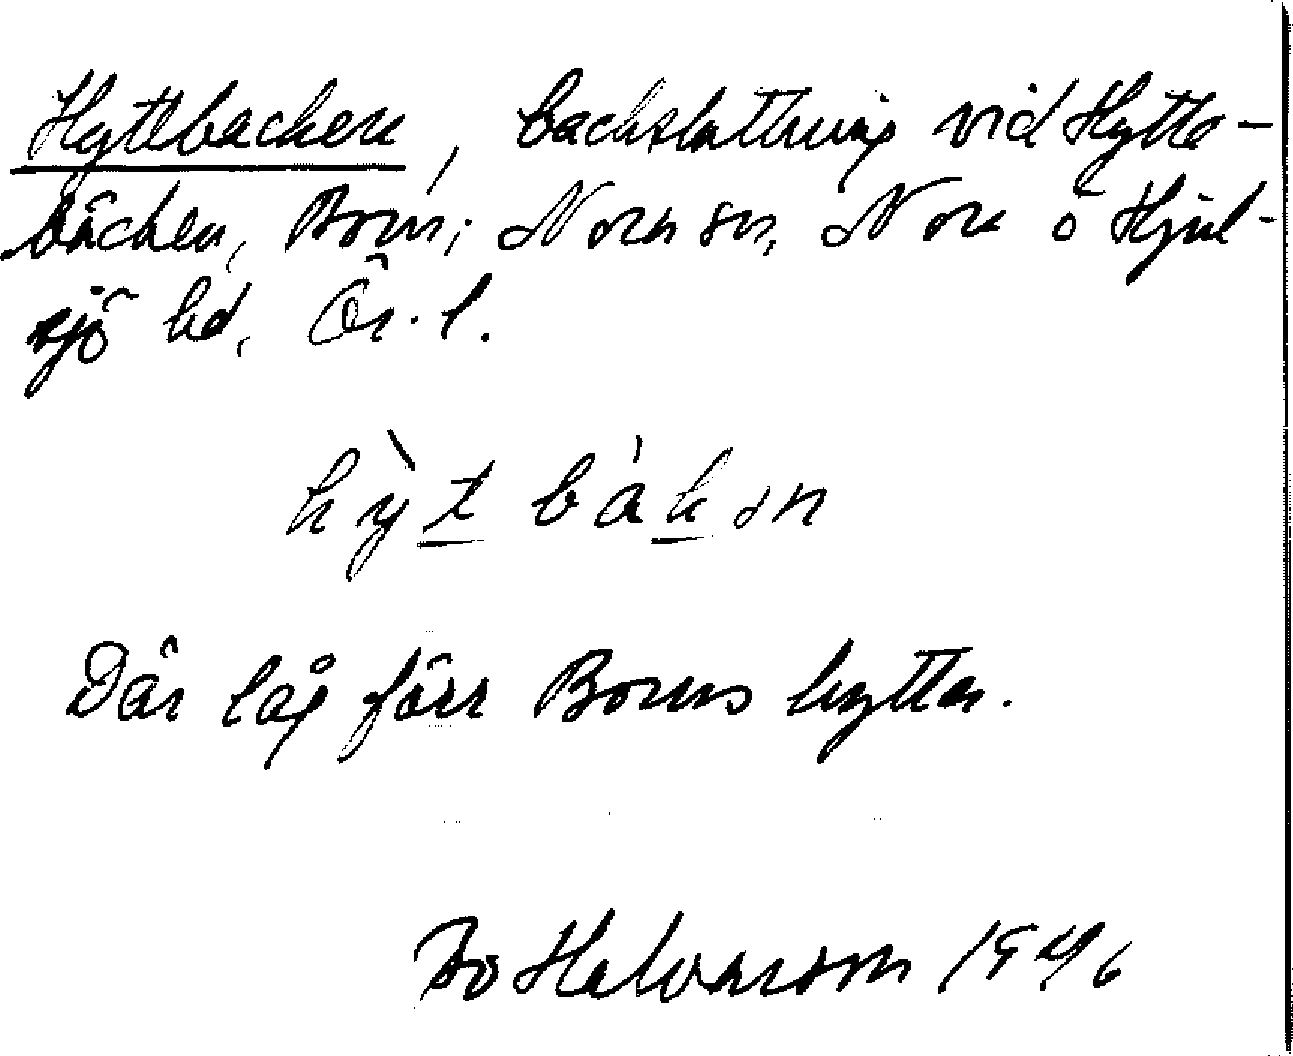 Hyttbacken, backsluttning vid Hytt-
bäcken, Born; Nora sn, Nora o Hjul-
sjö hd, Ör. l.
hỳt bàkən
Där låg förr Borns hytta.
Bo Halvarson 1946